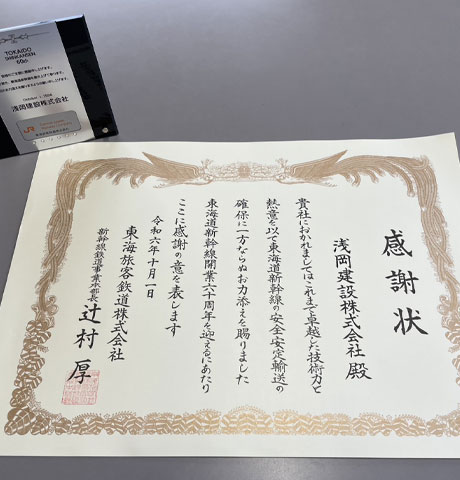 感謝状
浅岡建設株式会社 殿
貴社におかれましてはこれまで卓越した技術力と
熱意を以て東海道新幹線の安全安定輸送の
確保に一方ならぬお力添えを賜りました
東海道新幹線開業六十周年を迎えるにあたり
ここに感謝の意を表します
令和六年十月一日
東海旅客鉄道株式会社
新幹線鉄道事業本部長 辻村 厚
TOKAIDO
SHINKANSEN
60th
October 1, 2024
浅岡建設株式会社